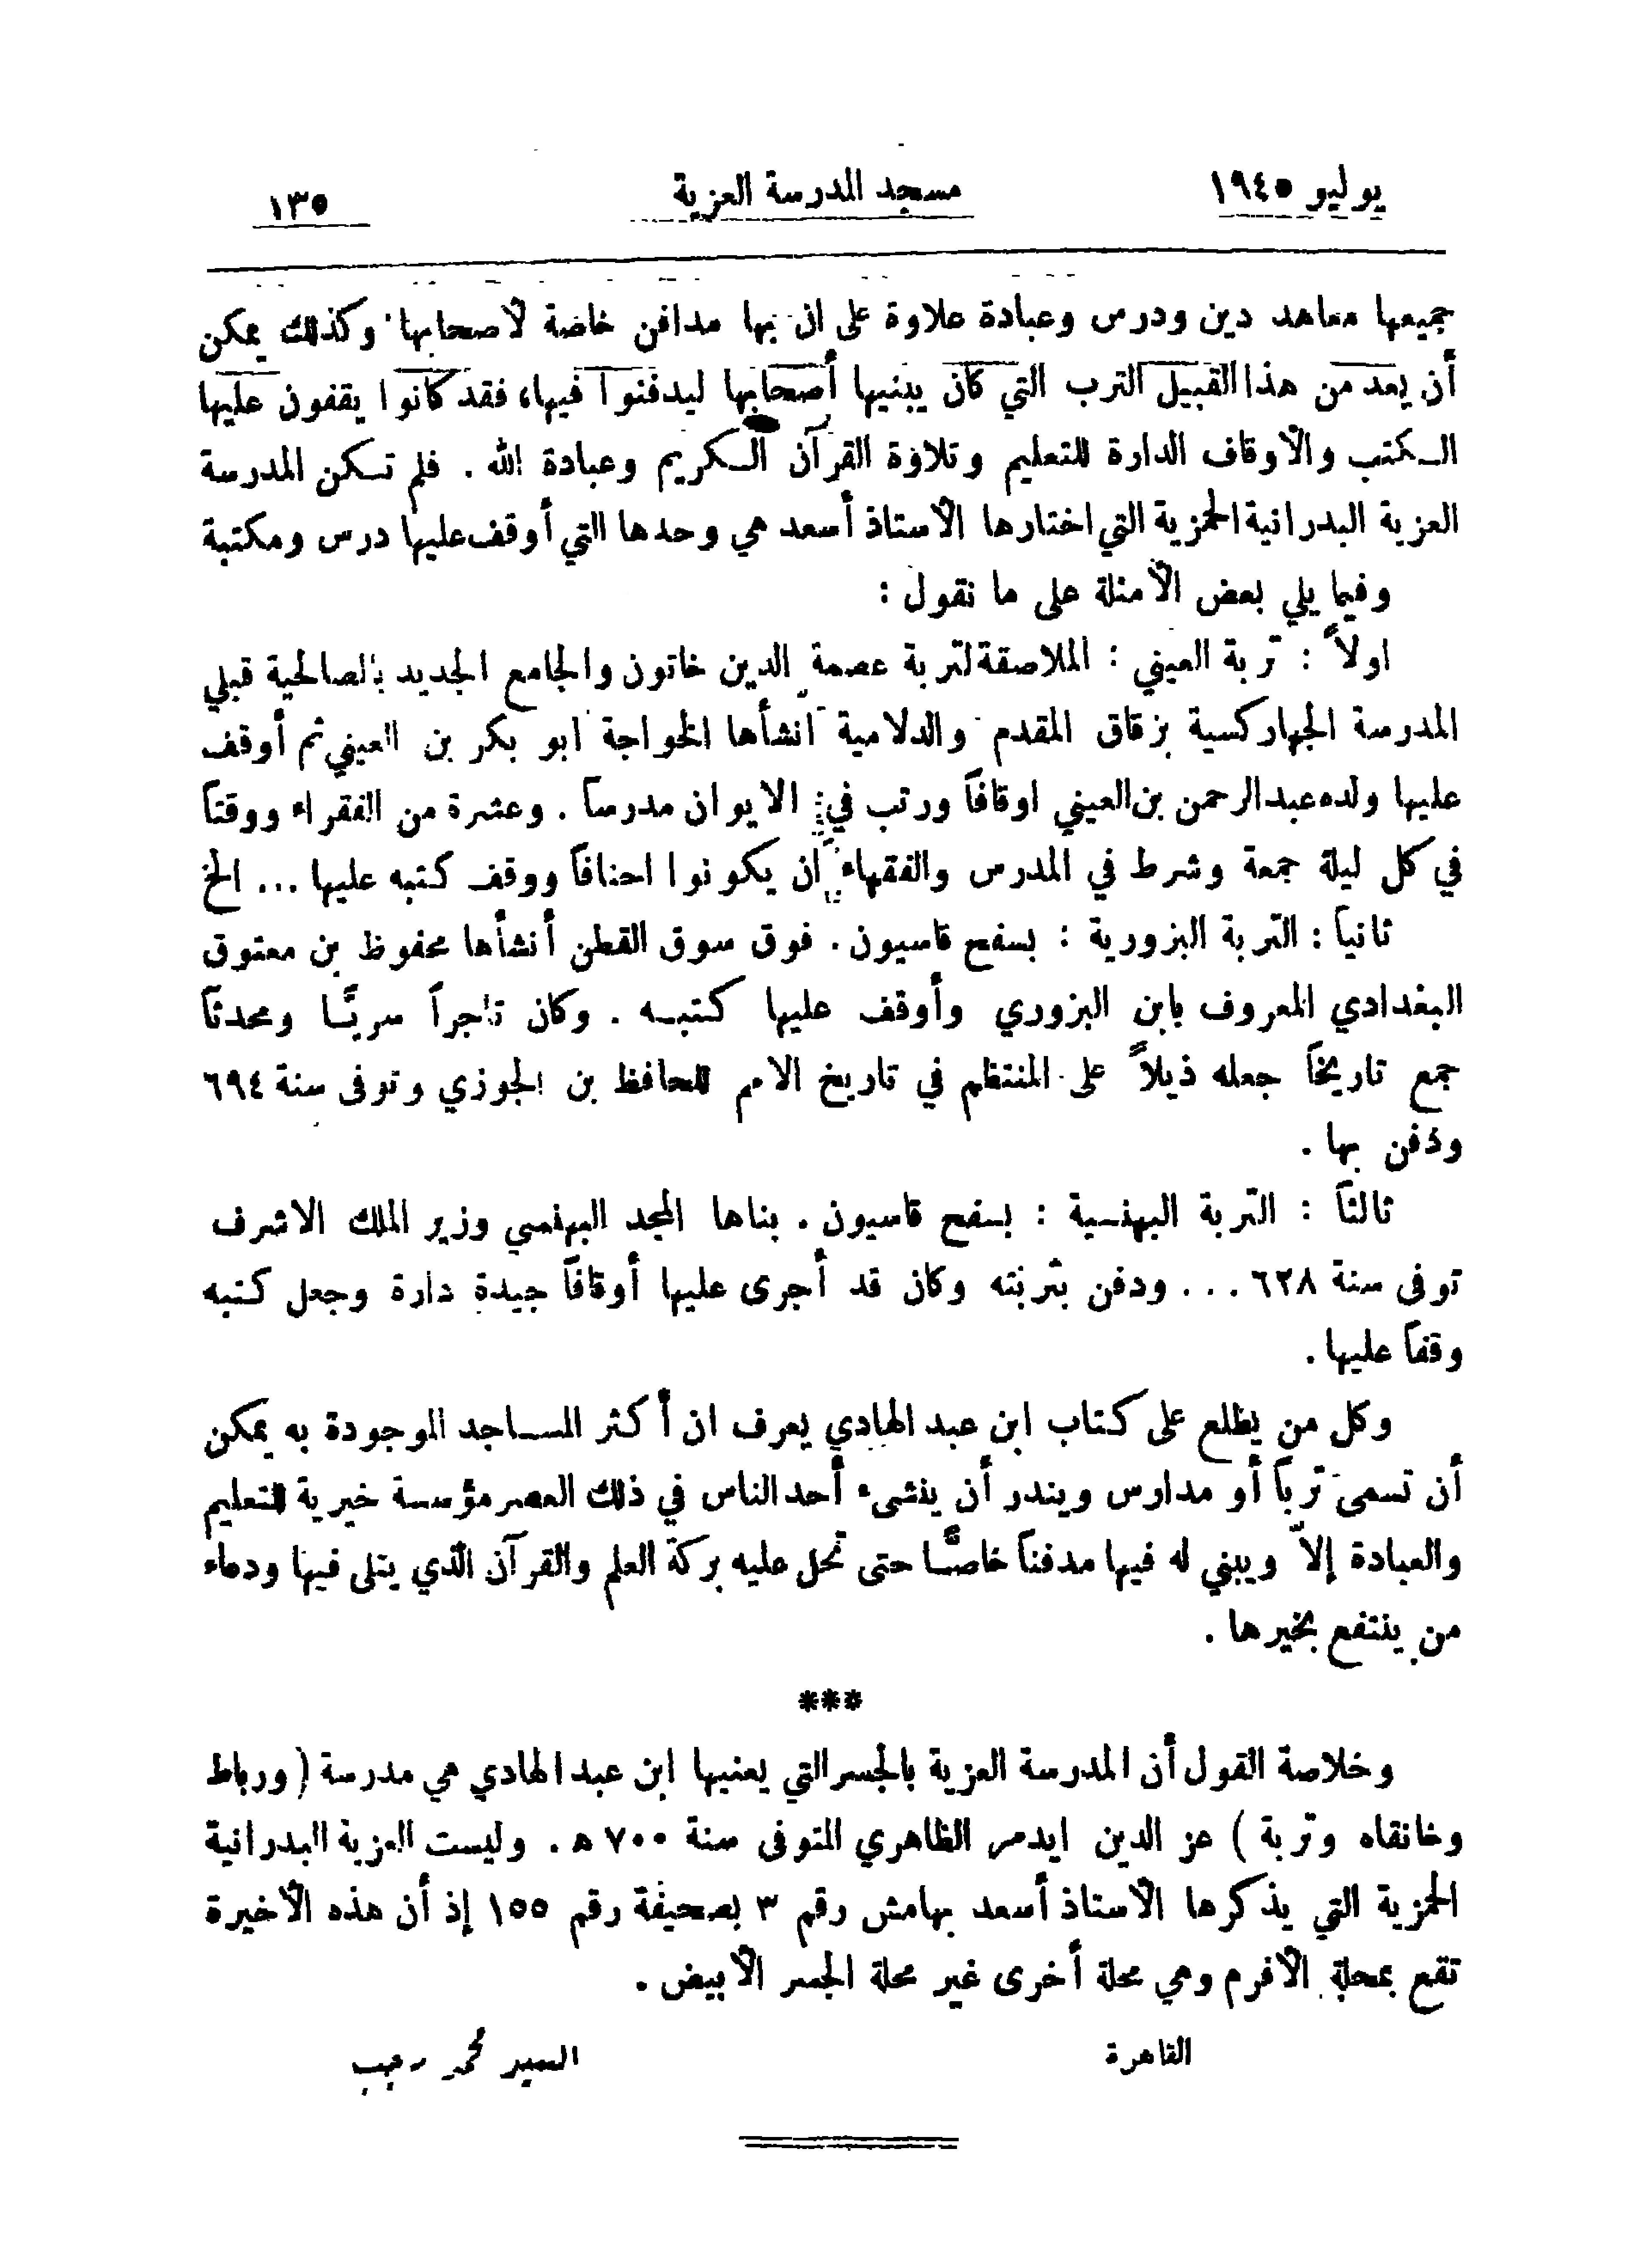 يوليو ١٩٤٥ مسجد المدرسة العزية ١٣٥
جميعها معاهد دين ودرس وعبادة علاوة على ان بها مدافن خاصة لأصحابها وكذلك يمكن
أن يعد من هذا القبيل الترب التي كان يبنيها أصحابها ليدفنوا فيها، فقد كانوا يقفون عليها
الـكتب والأوقاف الدارة للتعليم وتلاوة القرآن الـكريم وعبادة الله . فلم تـكن المدرسة
العزية البدرانية الحمزية التي اختارها الأستاذ أسعد هي وحدها التي أوقف عليها درس ومكتبة
وفيما يلي بعض الأمثلة على ما نقول :
اولاً : تربة العيني : الملاصقة لتربة عصمة الدين خاتون والجامع الجديد بالصالحية قبلي
المدرسة الجهاركسية بزقاق المقدم والدلامية انشأها الخواجة ابو بكر بن العيني ثم أوقف
عليها ولده عبد الرحمن بن العيني اوقافاً ورتب في الايوان مدرساً . وعشرة من الفقراء ووقتاً
في كل ليلة جمعة وشرط في المدرس والفقهاء ان يكونوا احنافاً ووقف كتبه عليها ... الخ
ثانياً : التربة البزورية : بسفح قاسيون . فوق سوق القطن أنشأها محفوظ بن معتوق
البغدادي المعروف بابن البزوري وأوقف عليها كتبـه . وكان تاجراً سريًّـا ومحدثاً
جمع تاريخاً جعله ذيلاً على المنتظم في تاريخ الامم للحافظ بن الجوزي وتوفى سنة ٦٩٤
ودفن بها .
ثالثاً : التربة البهنسية : بسفح قاسيون . بناها المجد البهنسي وزير الملك الاشرف
توفى سنة ٦٢٨ ... ودفن بتربته وكان قد أجرى عليها أوقافاً جيدة دارة وجعل كتبه
وقفاً عليها .
وكل من يطلع على كتاب ابن عبد الهادي يعرف ان أكثر المسـاجد الموجودة به يمكن
أن تسمى ترباً أو مدارس ويندر أن ينشىء أحد الناس في ذلك العصر مؤسسة خيرية للتعليم
والعبادة إلاّ ويبني له فيها مدفناً خاصًّـا حتى تحل عليه بركة العلم والقرآن الذي يتلى فيها ودعاء
من ينتفع بخيرها .
***
وخلاصة القول أن المدرسة العزية بالجسر التي يعنيها ابن عبد الهادي هي مدرسة (ورباط
وخانقاه وتربة ) عز الدين ايدمر الظاهري المتوفى سنة ٧٠٠ هـ . وليست العزية البدرانية
الحمزية التي يذكرها الأستاذ أسعد بهامش رقم ٣ بصحيفة رقم ١٥٥ إذ أن هذه الأخيرة
تقع بمحلة الأفرم وهي محلة أخرى غير محلة الجسر الأبيض .
القاهرة السيد محمد رجب